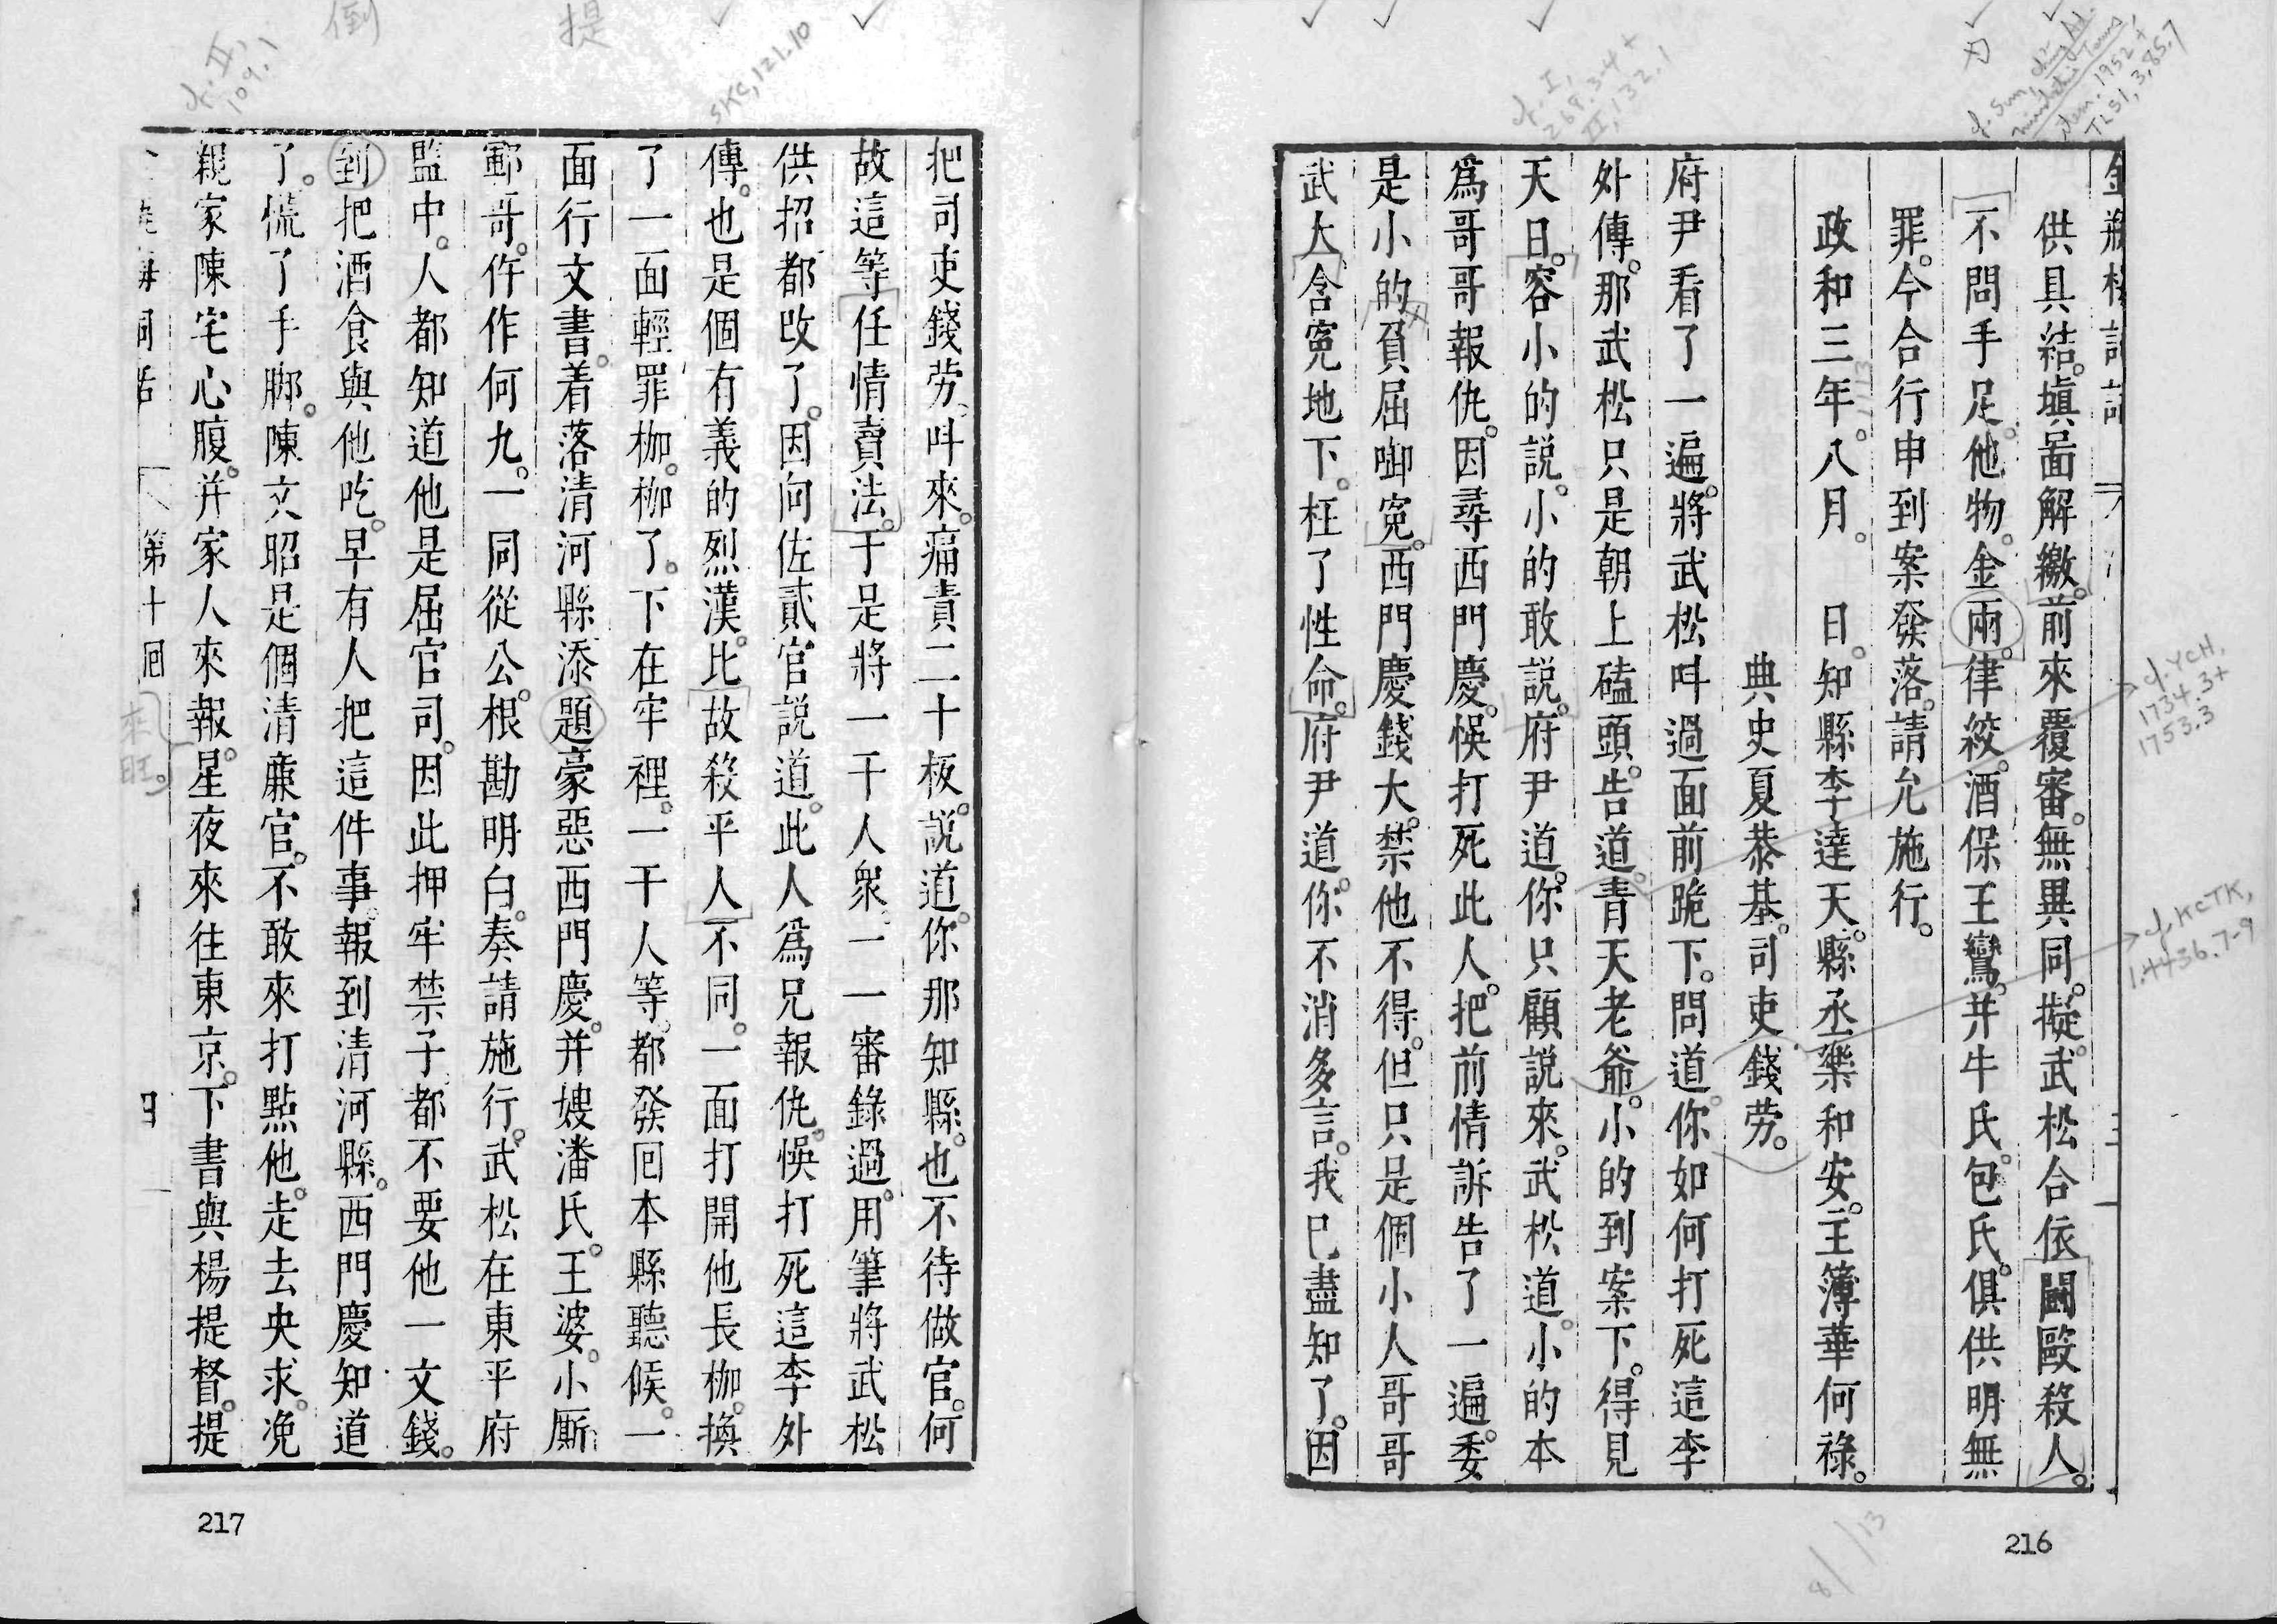 金瓶梅詞話
供具結。塡啚解繳。前來覆審。無異同。擬武松合依鬬毆殺人。
不問手足。他物。金兩。律絞。酒保王鸞。并牛氏。包氏。俱供明無
罪。今合行申到案發落。請允施行。
政和三年。八月。 日。知縣李達天。縣丞樂和安。主簿華何祿。
典史夏恭基。司吏錢劳。
府尹看了一遍。將武松呌過面前跪下。問道。你如何打死這李
外傳。那武松只是朝上磕頭。告道。青天老爺。小的到案下。得見
天日。容小的説。小的敢説。府尹道。你只顧説來。武松道。小的本
爲哥哥報仇。因尋西門慶。悞打死此人。把前情訴告了一遍。委
是小的負屈啣寃。西門慶錢大。禁他不得。但只是個小人哥哥
武大含寃地下。枉了性命。府尹道。你不消多言。我已盡知了。因
216
把司吏錢劳呌來。痛責二十板。説道。你那知縣。也不待做官。何
故這等任情賣法。于是將一干人衆。一一審錄過。用筆將武松
供招都改了。因向佐貳官説道。此人爲兄報仇。悞打死這李外
傳。也是個有義的烈漢。比故殺平人不同。一面打開他長枷。換
了一面輕罪枷。枷了。下在牢裡。一干人等。都發囘本縣聽候。一
面行文書。着落清河縣添題豪惡西門慶。并嫂潘氏。王婆。小厮
鄆哥。仵作何九。一同從公。根勘明白。奏請施行。武松在東平府
監中。人都知道他是屈官司。因此押牢禁子都不要他一文錢。
到把酒食與他吃。早有人把這件事。報到清河縣。西門慶知道
了。慌了手脚。陳文昭是個清廉官。不敢來打點他。走去央求。凂
親家陳宅心腹。并家人來報。星夜來往東京。下書與楊提督。提
第十囘
四
217
倒
提
cf. II, 109.1
SKC, 121.10
cf. I, 268.3-4 + II, 132.1
刃
TLSI, 3, 85.7
cf. YCH, 1734.3+ 1753.3
cf. KCTK, 1.4436.7-9
來旺。
8/13